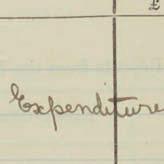 £
Expenditure